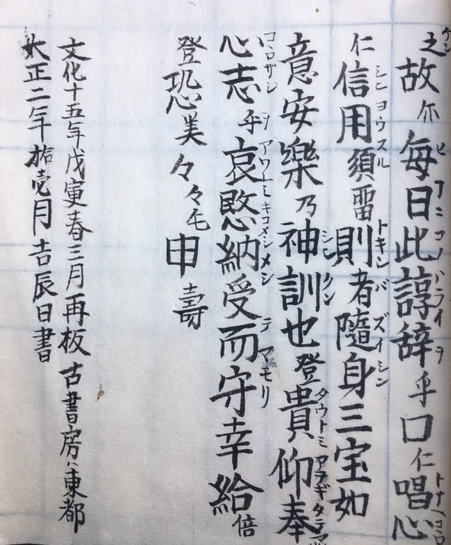 之故尓毎日此諄辞乎口仁唱心
仁信用須雷則者隨身三宝如
意安樂乃神訓也登貴仰奉
心志乎哀愍納受而守幸給倍
登恐美々々毛申壽
文化十五年戊寅春三月再板 古書房ハ東都
大正二年拾壱月吉辰日書